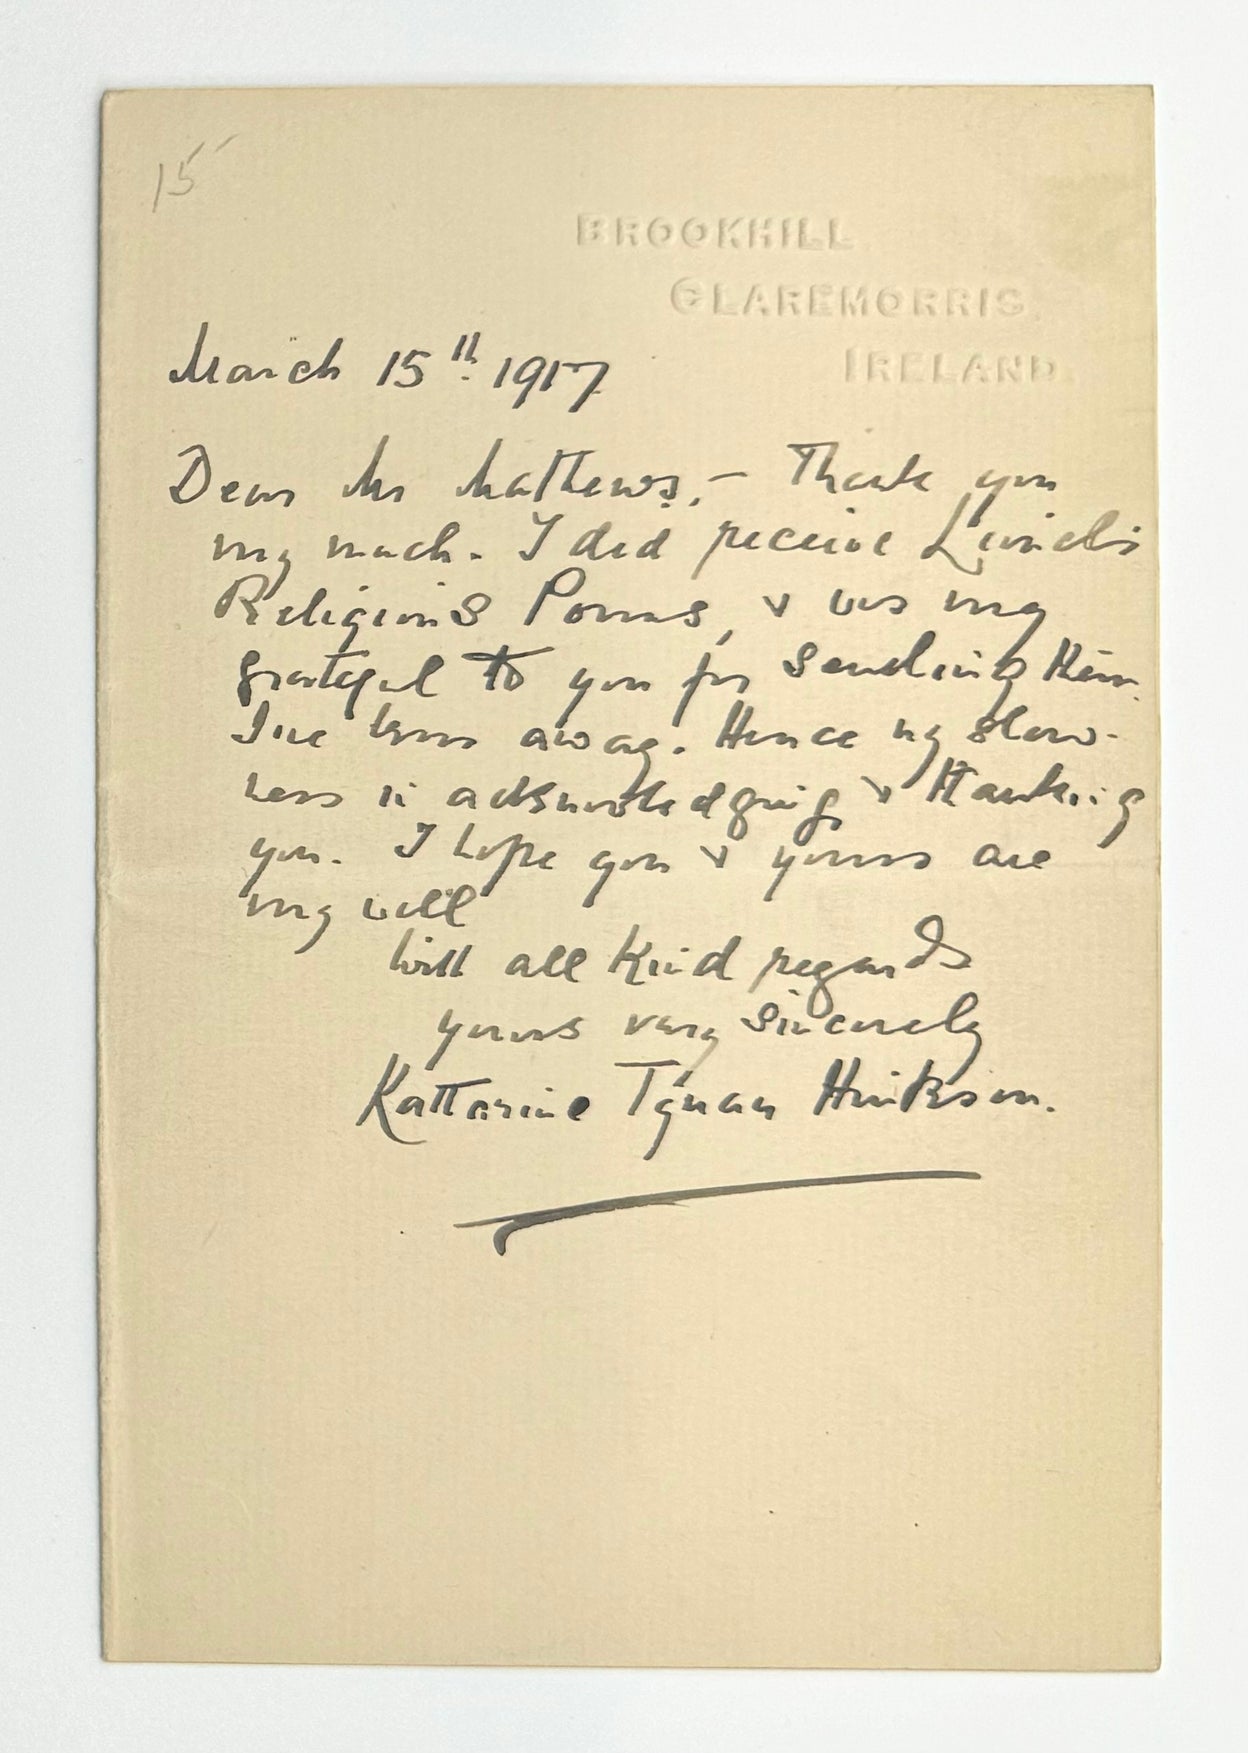 15
BROOKHILL
CLAREMORRIS
IRELAND
March 15th 1917
Dear Mr Mathews, - Thank you
very much. I did receive Lionel's
Religious Poems, & was very
grateful to you for sending them.
I've been away. Hence my slow-
ness in acknowledging & thanking
you. I hope you & yours are
very well
With all kind regards
yours very sincerely
Katharine Tynan Hinkson.